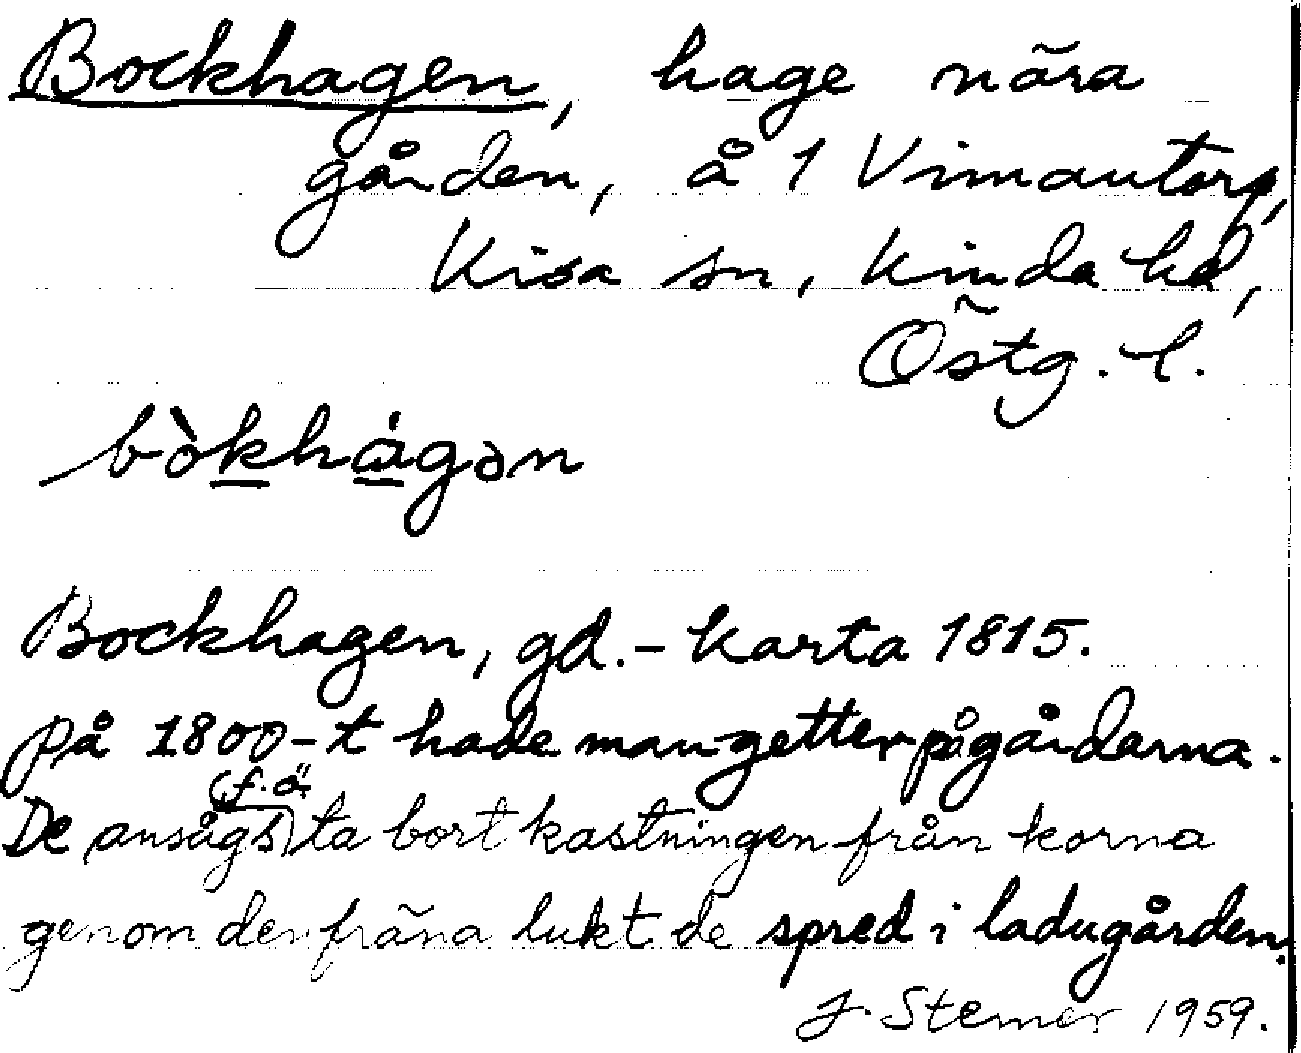 Bockhagen, hage nära
gården, å 1 Vimautorp,
Kisa sn, Kinda hd,
Östg. l.
bòkhágən
Bockhagen, gd. - Karta 1815.
På 1800-t hade man getter på gårdarna.
(f.ö.
De ansågs) ta bort kastningen från korna
genom den fräna lukt de spred i ladugården.
J. Sterner 1959.